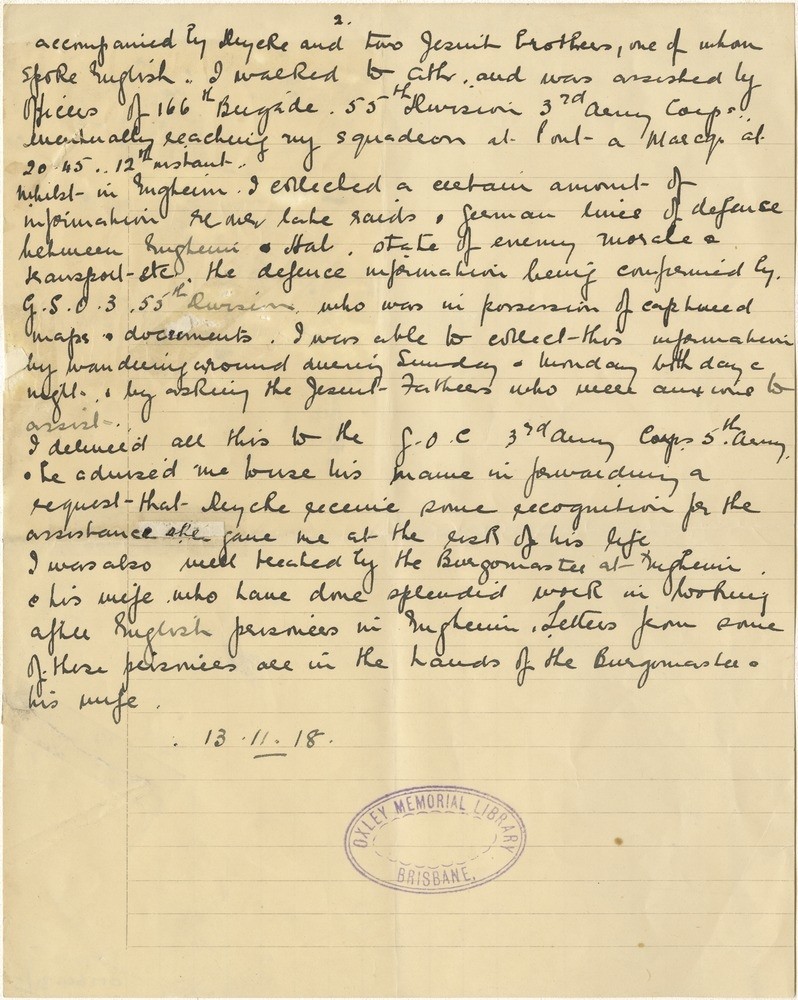 2.
accompanied by Deycke and two Jesuit brothers, one of whom
spoke English. I walked to Ath. and was assisted by
Officers of 166th Brigade. 55th Division 3rd Army Corps
eventually reaching my squadron at Pont-a Marcq. at
20.45.. 12th instant..
Whilst in Enghein. I collected a certain amount of
information re our late raids & German lines of defence
between Enghein & Hal. state of enemy morale &
transport-etc, the defence information being confirmed by.
G.S.O.3.55th Division, who was in possession of captured
maps & documents. I was able to collect this information
by wandering around during Sunday & Monday both day &
night. & by asking the Jesuit Fathers who were anxious to
assist.
I delivered all this to the G.O.C 3rd Army Corps 5th Army.
& he advised me to use his name in forwarding a
request that Deycke receive some recognition for the
assistance he gave me at the risk of his life
I was also well treated by the Burgomaster at Enghein.
& his wife who have done splendid work in looking
after English prisoners in Enghein. Letters from some
of these prisoners are in the hands of the Burgomaster &
his wife.
13.11.18.
OXLEY MEMORIAL LIBRARY
BRISBANE.